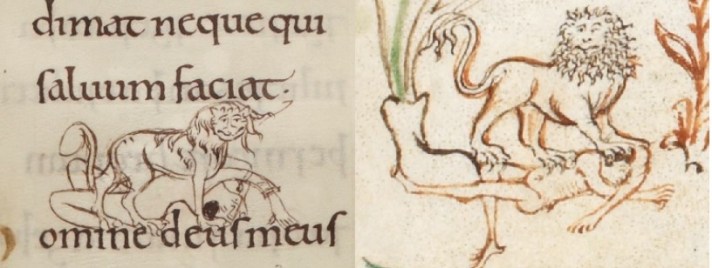 dimat neque qui
saluum faciat·
omine deus meus